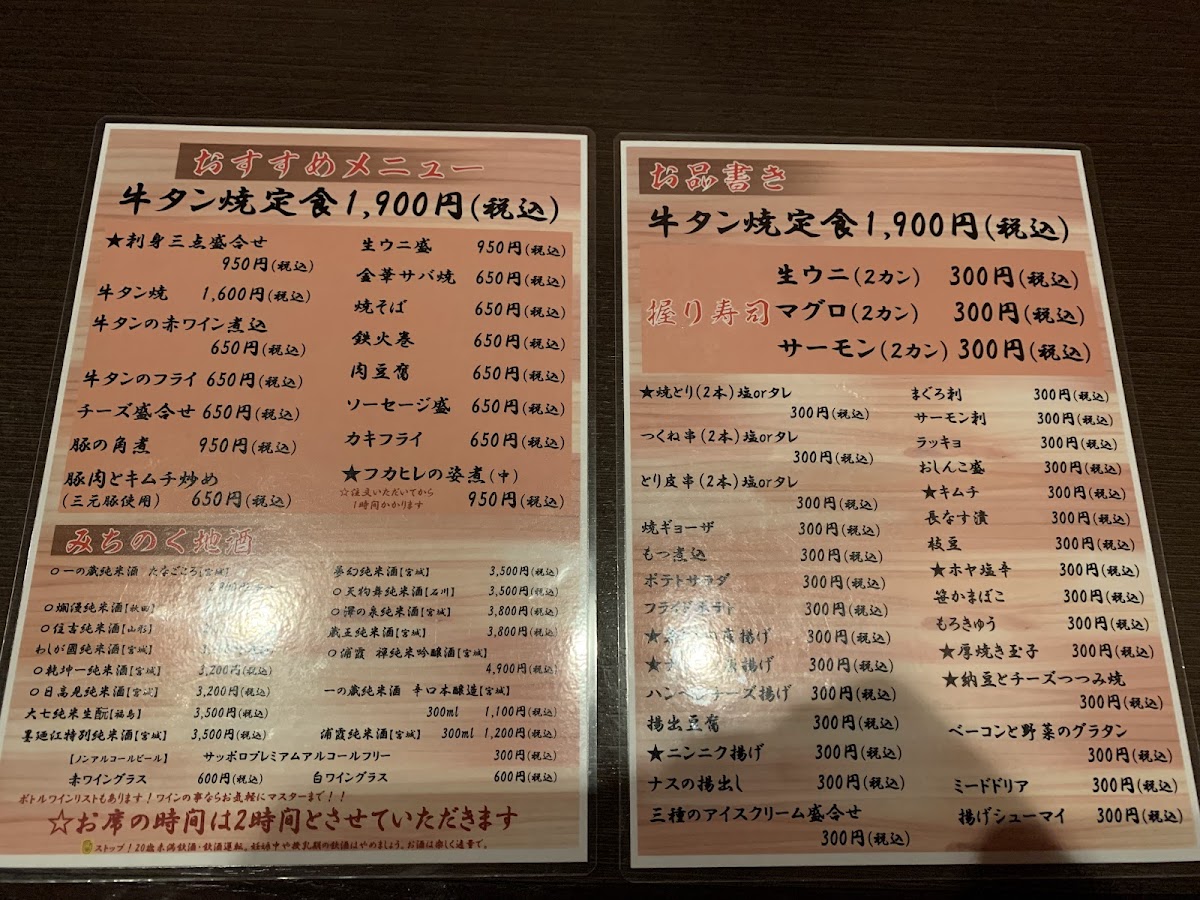 おすすめメニュー
牛タン焼定食1,900円(税込)
★刺身三点盛合せ
950円(税込)
牛タン焼 1,600円(税込)
牛タンの赤ワイン煮込
650円(税込)
牛タンのフライ 650円(税込)
チーズ盛合せ 650円(税込)
豚の角煮 950円(税込)
豚肉とキムチ炒め
(三元豚使用) 650円(税込)
生ウニ盛 950円(税込)
金華サバ焼 650円(税込)
焼そば 650円(税込)
鉄火巻 650円(税込)
肉豆腐 650円(税込)
ソーセージ盛 650円(税込)
カキフライ 650円(税込)
★フカヒレの姿煮(中)
☆注文いただいてから
1時間かかります 950円(税込)
みちのく地酒
○一の蔵純米酒 たなごころ[宮城]
○爛漫純米酒[秋田]
○住吉純米酒[山形]
わしが國純米酒[宮城]
○乾坤一純米酒[宮城] 3,200円(税込)
○日高見純米酒[宮城] 3,200円(税込)
大七純米生酛[福島] 3,500円(税込)
墨廼江特別純米酒[宮城] 3,500円(税込)
夢幻純米酒[宮城] 3,500円(税込)
○天狗舞純米酒[石川] 3,500円(税込)
○澤の泉純米酒[宮城] 3,800円(税込)
蔵王純米酒[宮城] 3,800円(税込)
○浦霞 禅純米吟醸酒[宮城]
4,900円(税込)
一の蔵純米酒 辛口本醸造[宮城]
300ml 1,100円(税込)
浦霞純米酒[宮城] 300ml 1,200円(税込)
[ノンアルコールビール] サッポロプレミアムアルコールフリー 300円(税込)
赤ワイングラス 600円(税込) 白ワイングラス 600円(税込)
ボトルワインリストもあります!ワインの事ならお気軽にマスターまで!!
☆お席の時間は2時間とさせていただきます
ストップ!20歳未満飲酒・飲酒運転。妊娠中や授乳期の飲酒はやめましょう。お酒は楽しく適量で。
お品書き
牛タン焼定食1,900円(税込)
握り寿司
生ウニ(2カン) 300円(税込)
マグロ(2カン) 300円(税込)
サーモン(2カン) 300円(税込)
★焼とり(2本)塩orタレ
300円(税込)
つくね串(2本)塩orタレ
300円(税込)
とり皮串(2本)塩orタレ
300円(税込)
焼ギョーザ 300円(税込)
もつ煮込 300円(税込)
ポテトサラダ 300円(税込)
フライドポテト 300円(税込)
揚げ 300円(税込)
揚げ 300円(税込)
ハンペンチーズ揚げ 300円(税込)
揚出豆腐 300円(税込)
★ニンニク揚げ 300円(税込)
ナスの揚出し 300円(税込)
三種のアイスクリーム盛合せ
300円(税込)
まぐろ刺 300円(税込)
サーモン刺 300円(税込)
ラッキョ 300円(税込)
おしんこ盛 300円(税込)
★キムチ 300円(税込)
長なす漬 300円(税込)
枝豆 300円(税込)
★ホヤ塩辛 300円(税込)
笹かまぼこ 300円(税込)
もろきゅう 300円(税込)
★厚焼き玉子 300円(税込)
★納豆とチーズつつみ焼
300円(税込)
ベーコンと野菜のグラタン
300円(税込)
ミートドリア 300円(税込)
揚げシューマイ 300円(税込)